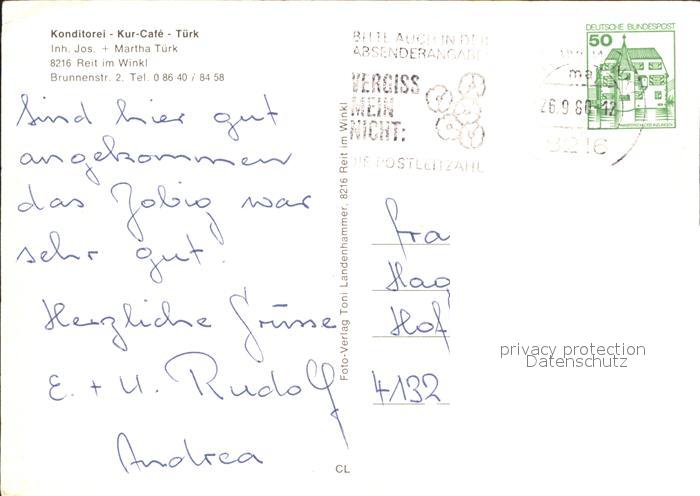 Konditorei - Kur-Café - Türk
Inh. Jos. + Martha Türk
8216 Reit im Winkl
Brunnenstr. 2. Tel. 0 86 40 / 84 58
Sind hier gut
angekommen
das Zobig war
sehr gut!
Herzliche Grüsse
E. + U. Rudolf
Andrea
Foto-Verlag Toni Landenhammer, 8216 Reit im Winkl
CL
BITTE AUCH IN DER
ABSENDERANGABE
VERGISS
MEIN
NICHT:
DIE POSTLEITZAHL
26.9.80-12
8216
DEUTSCHE BUNDESPOST
50
WASSERSCHLOSS INZLINGEN
Fra
Hag
Hof
4132
privacy protection
Datenschutz